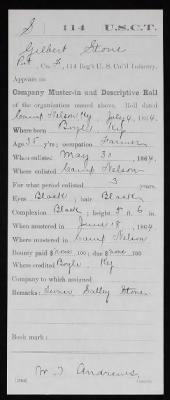 S | 114 | U.S.C.T.
Gilbert Stone
Pvt, Co. , 114 Reg't U. S. Col'd Infantry.
Appears on
Company Muster-in and Descriptive Roll
of the organization named above. Roll dated
Camp Nelson Ky July 4, 1864.
Where born Boyle Ky
Age 35 y'rs; occupation Farmer
When enlisted May 30, 1864.
Where enlisted Camp Nelson
For what period enlisted 3 years.
Eyes Black; hair Black
Complexion Black; height 5 ft. 6 in.
When mustered in June 18, 1864
Where mustered in Camp Nelson
Bounty paid $ none 100; due $ none 100
Where credited Boyle Ky
Company to which assigned
Remarks: Owner Stone
Book mark:
Andrews